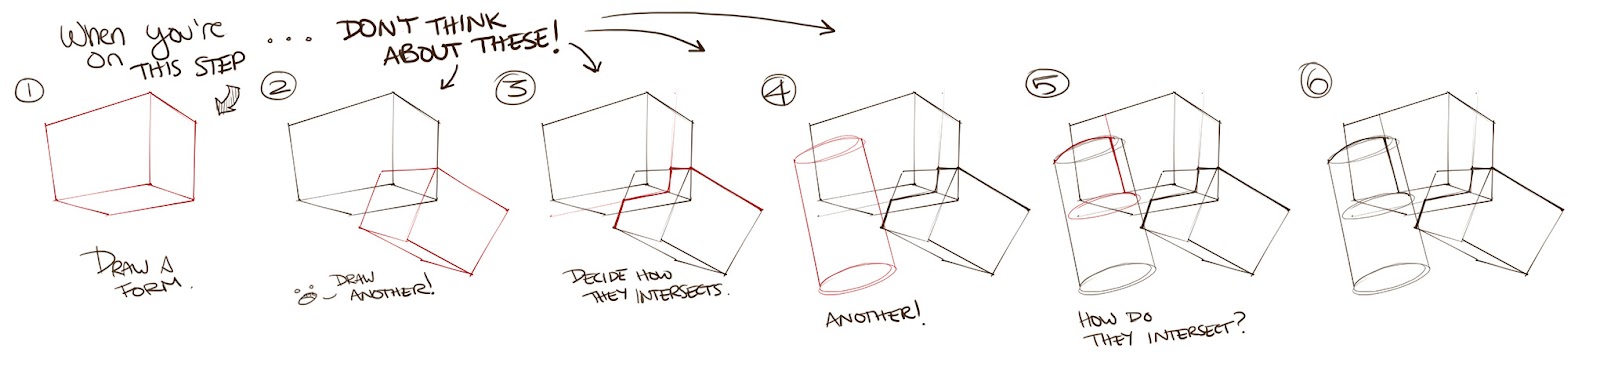 When you're
on THIS STEP
... DON'T THINK
ABOUT THESE!
1
2
3
4
5
6
DRAW A
FORM.
DRAW
ANOTHER!
DECIDE HOW
THEY INTERSECTS.
ANOTHER!
HOW DO
THEY INTERSECT?